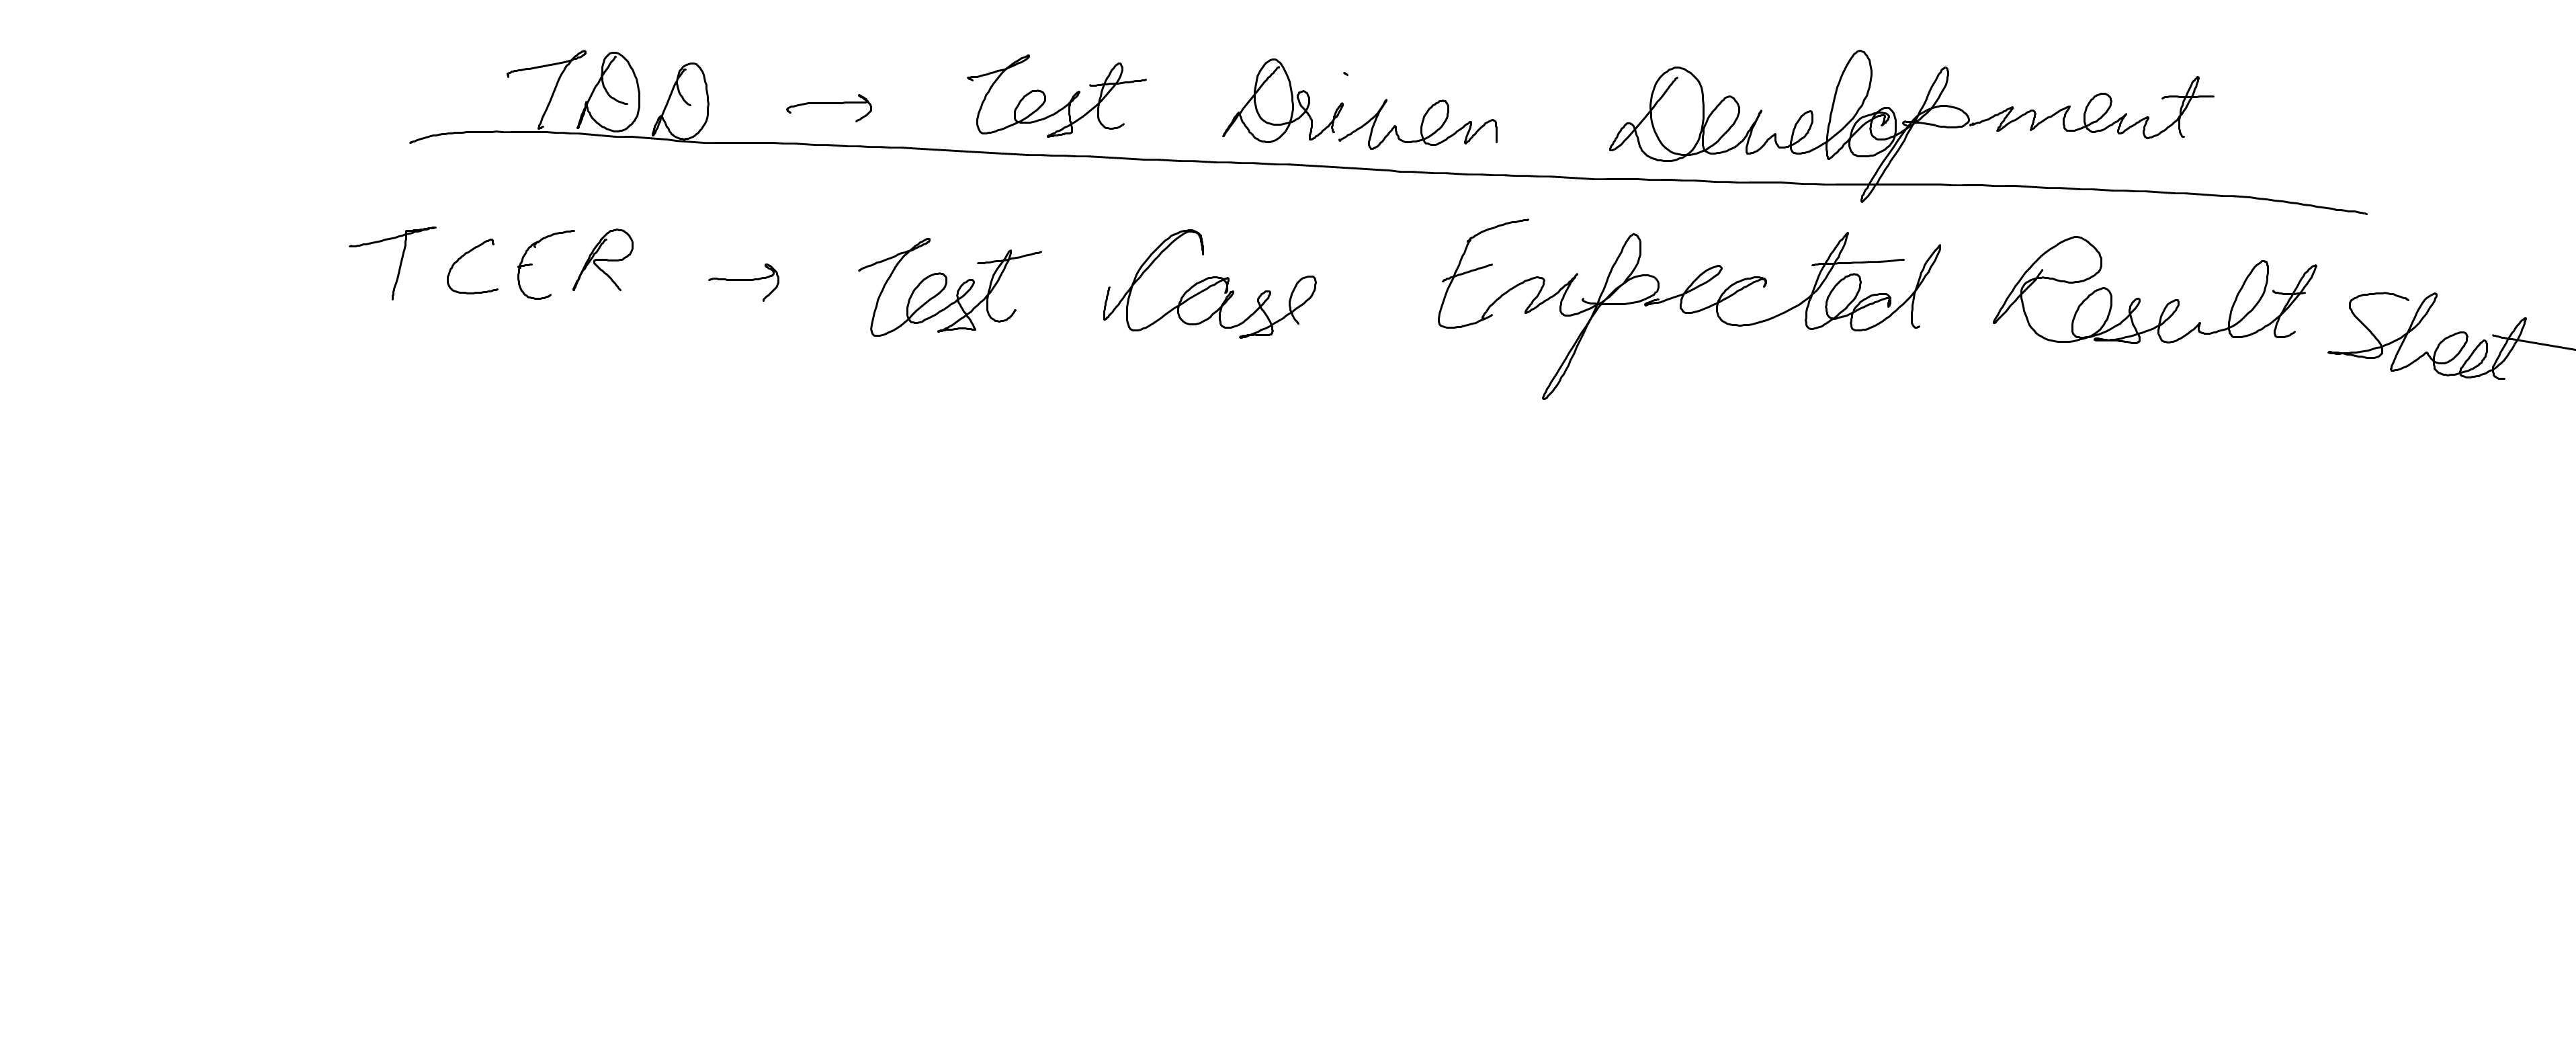 TDD → Test Driven Development
TCER → Test Case Expected Result Sheet